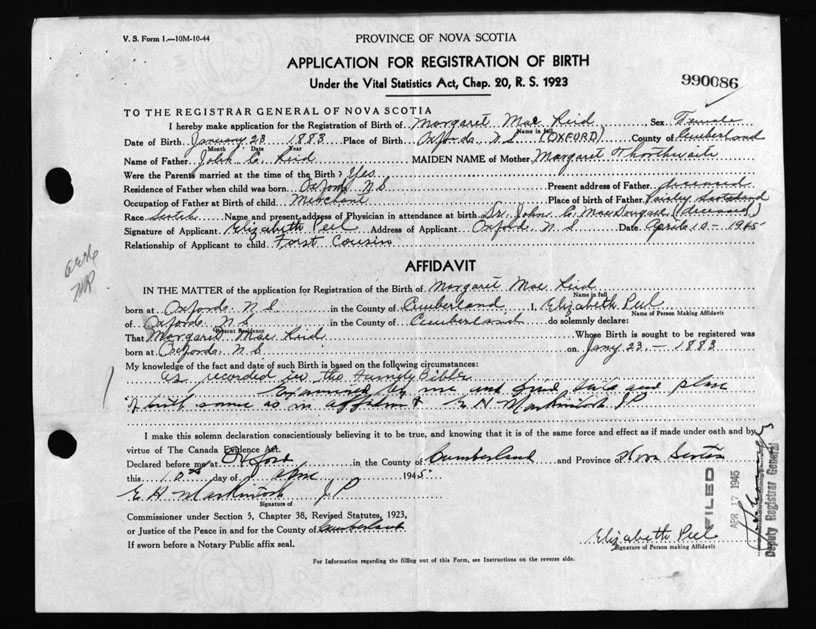 V. S. Form 1.—10M-10-44
PROVINCE OF NOVA SCOTIA
APPLICATION FOR REGISTRATION OF BIRTH
Under the Vital Statistics Act, Chap. 20, R. S. 1923
990086
TO THE REGISTRAR GENERAL OF NOVA SCOTIA
I hereby make application for the Registration of Birth of Margaret Mae Reid Sex Female
Name in full
Date of Birth January 23 1883 Place of Birth Oxford N.S. (OXFORD) County of Cumberland
Month Date Year
Name of Father John C. Reid MAIDEN NAME of Mother Margaret Thorthwaite
Were the Parents married at the time of the Birth? Yes
Residence of Father when child was born Oxford N.S. Present address of Father deceased
Occupation of Father at Birth of child Merchant Place of birth of Father Paisley Scotland
Race Scotch Name and present address of Physician in attendance at birth Dr. John C. MacDougall (deceased)
Signature of Applicant Elizabeth Peel Address of Applicant Oxford, N.S. Date April 10 - 1945
Relationship of Applicant to child First Cousin
AFFIDAVIT
IN THE MATTER of the application for Registration of the Birth of Margaret Mae Reid
Name in full
born at Oxford, N.S. in the County of Cumberland I, Elizabeth Peel
Name of Person Making Affidavit
of Oxford, N.S. in the County of Cumberland do solemnly declare:
Present Residence
That Margaret Mae Reid Whose Birth is sought to be registered was
born at Oxford, N.S. on Jany 23. - 1883
My knowledge of the fact and date of such Birth is based on the following circumstances:
As recorded in the Family Bible
Examined by me and find date and place
of birth same as in affidavit E H Mackintosh J P
I make this solemn declaration conscientiously believing it to be true, and knowing that it is of the same force and effect as if made under oath and by
virtue of The Canada Evidence Act.
Declared before me at Oxford in the County of Cumberland and Province of Nova Scotia
this 10th day of April 1945
E H Mackintosh J P
Signature of
Commissioner under Section 5, Chapter 38, Revised Statutes, 1923,
or Justice of the Peace in and for the County of Cumberland
If sworn before a Notary Public affix seal.
Elizabeth Peel
Signature of Person making Affidavit
For Information regarding the filling out of this Form, see Instructions on the reverse side.
FILED
APR 17 1945
Deputy Registrar General